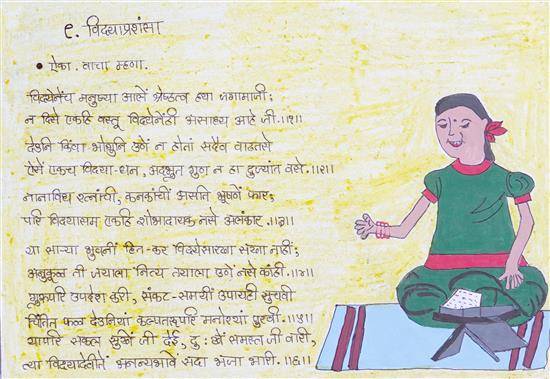 ९. विद्याप्रशंसा
• ऐका. वाचा म्हणा.
विद्येनेच मनुष्या आलें श्रेष्ठत्व ह्या जगामाजी;
न दिसे एकहि वस्तू विद्येनेंही असाध्य आहे जी.॥१॥
देउनि किंवा भोगुनि उणें न होतां सदैव वाढतसे
ऐसें एकच विद्या-धन, अद्भुत गुण न हा दुज्यांत वसे.॥२॥
नानाविध रत्नांचीं, कनकांचीं असति भूषणें फार;
परि विद्यासम एकहि शोभादायक नसे अलंकार.॥३॥
या साऱ्या भुवनीं हित-कर विद्येसारखा सखा नाहीं;
अनुकूल ती जयाला नित्य तयाला उणें नसे कांही.॥४॥
गुरुपरि उपदेश करी, संकट-समयीं उपायही सुचवी
चिंतित फल देउनियां कल्पतरूपरि मनोरथां पुरवी.॥५॥
यापरि सकल सुखें जी देई, दुःखें समस्त जी वारी,
त्या विद्यादेवीतें अनन्यभावें सदा भजा भारी.॥६॥